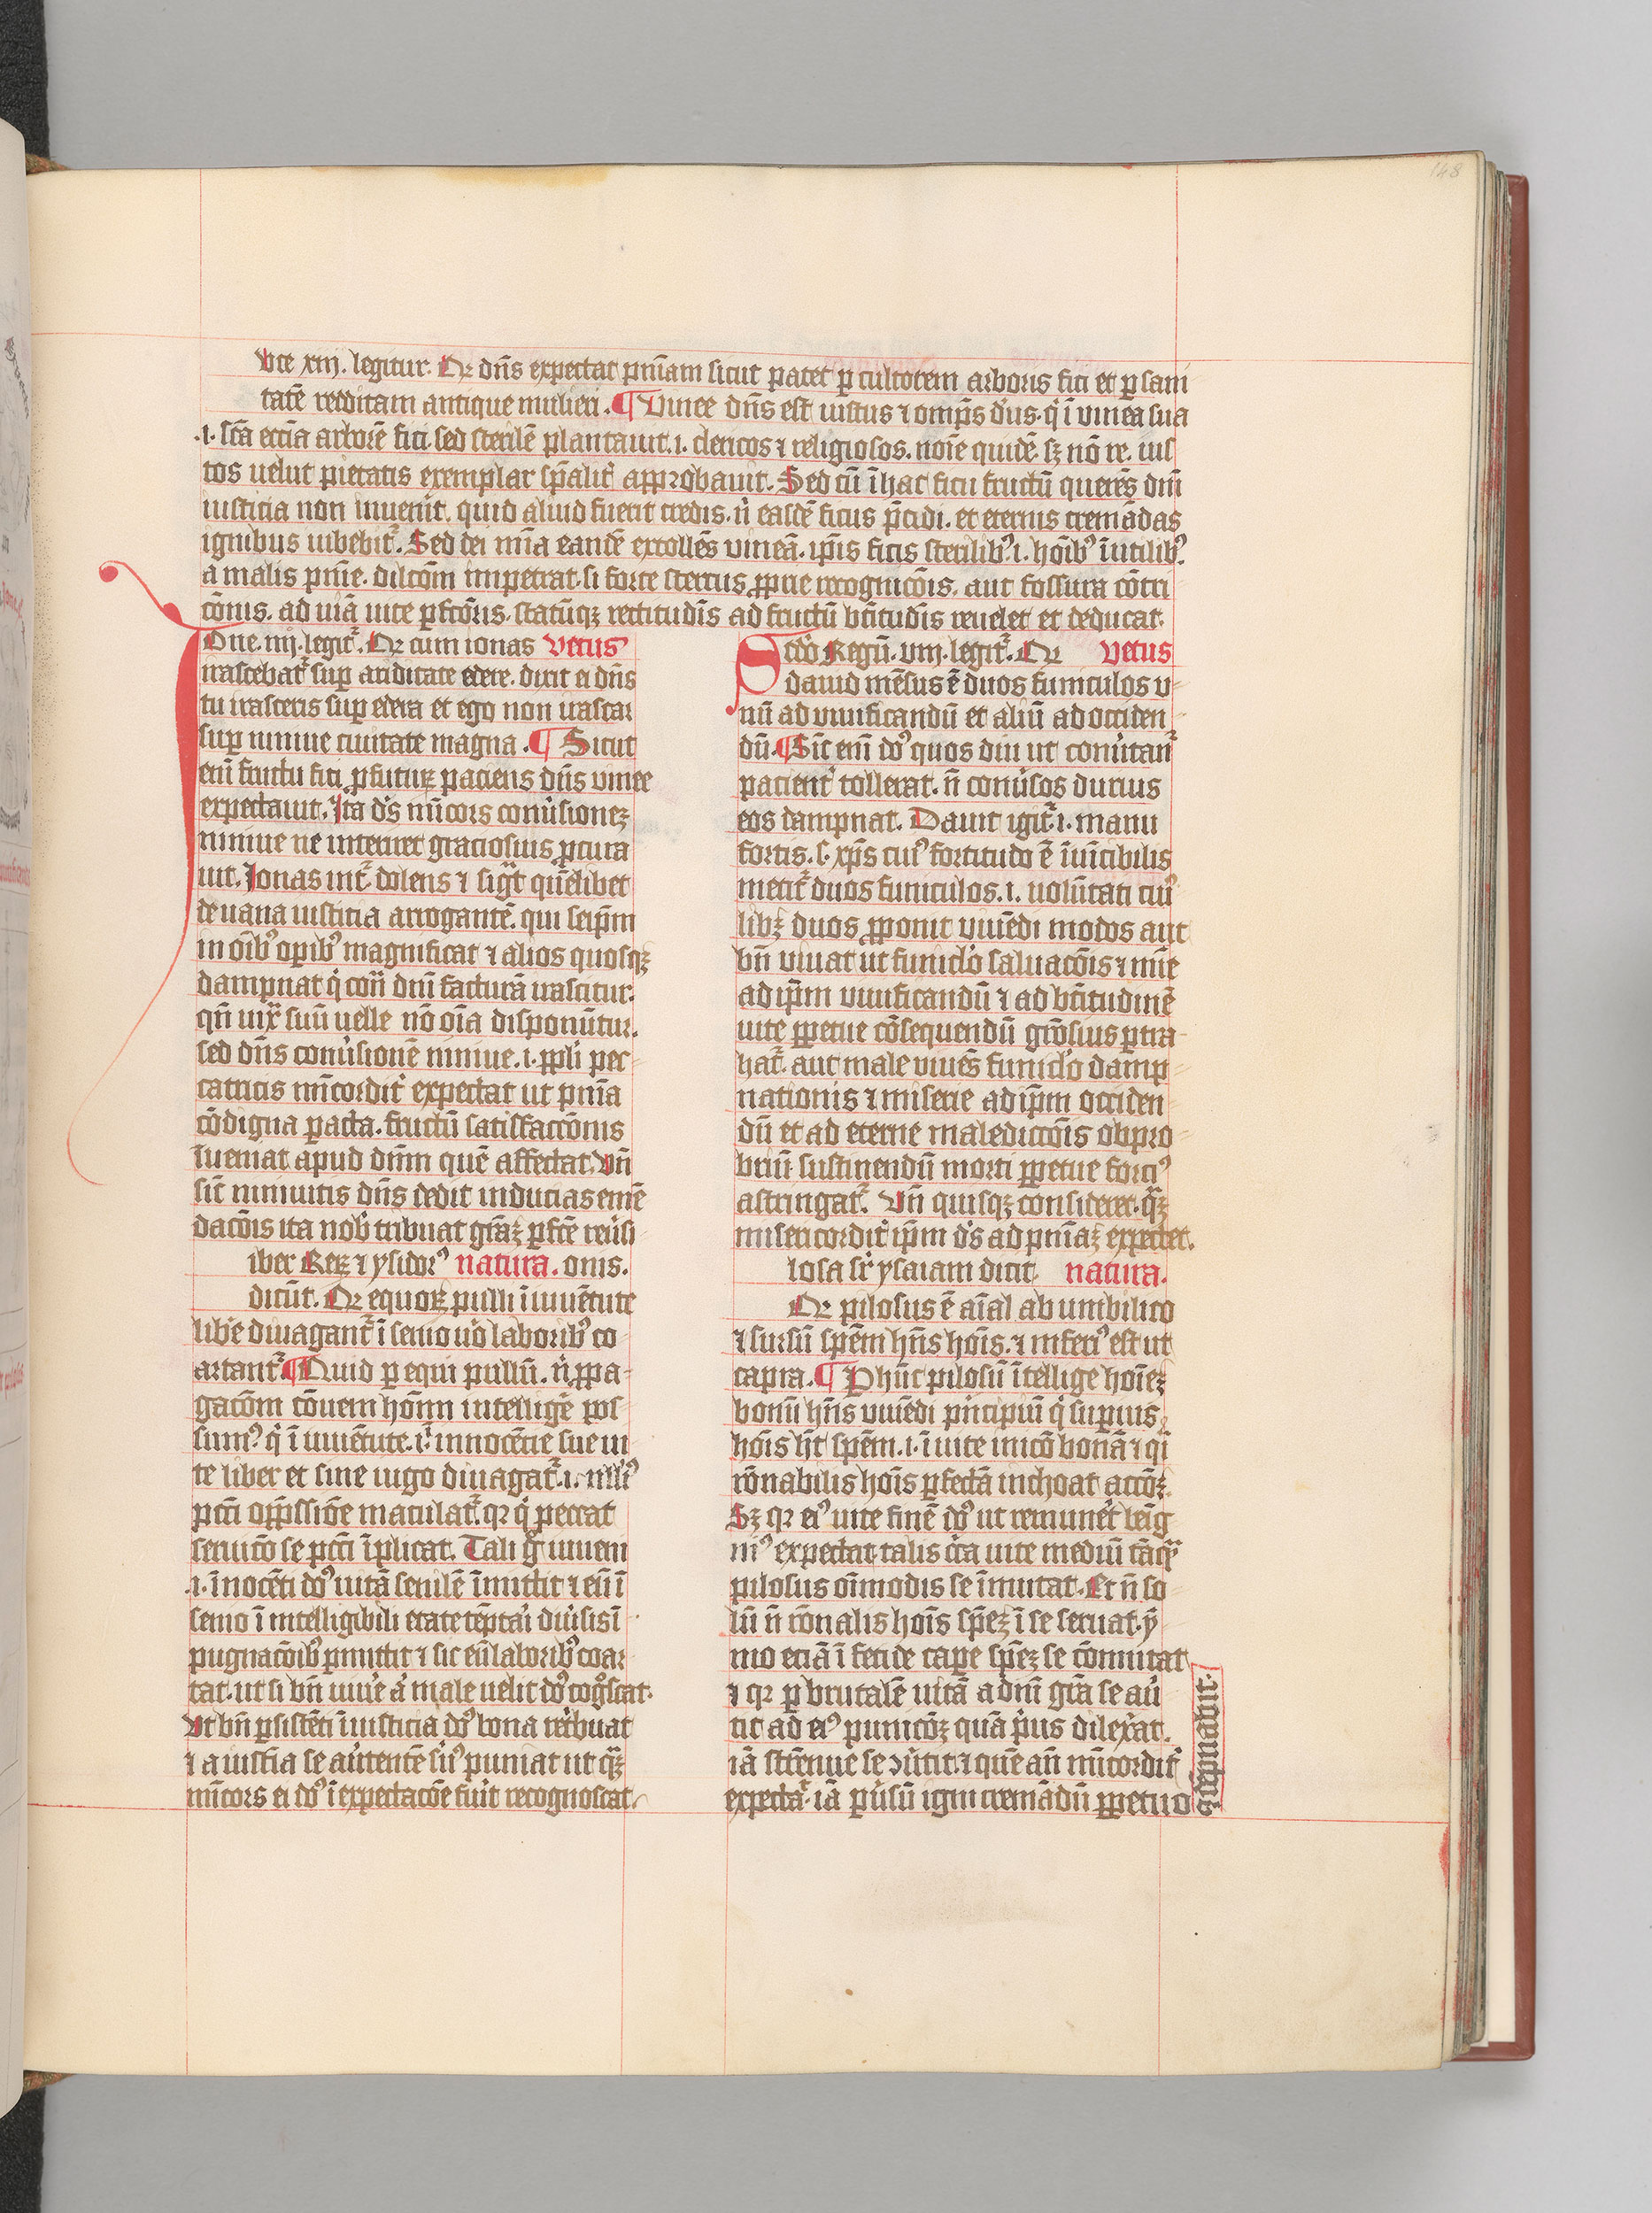 148
vce xiij. legitur. Qr dn̄s expectat pn̄iam sicut patet ꝑ cultorem arboris fici et ꝑ sani
tatē redditam antique mulieri. ¶ Vinee dn̄s est iustus ⁊ omp̄s ds. q ī vinea sua
.i. sc̄a ecc̄ia arborē fici sed sterilē plantauit .i. clericos ⁊ religiosos. noīe quidē. sꝫ nō re. ius
tos uelut pietatis exemplar sp̄alit approbauit. Sed cū ī hac ficu fructū querēs dn̄i
iusticia non inuenit. quid aliud fuerit credis. n easdē ficus p̄cidi. et eternis cremādas
ignibus iubebit. Sed dei mīa eandē extollēs vineā. ip̄is ficis sterilibꝰ .i. hoībꝰ īutilibꝰ.
a malis pn̄ie. dilcōm impetrat. si forte stercus ꝓprie recognicōis. aut fossura cōtri
cōnis. ad uiā uite ꝑfcōris. statūqꝫ rectitudīs ad fructū btītudīs reuelet et deducat.
Ione. iiij. legit. Qr cum ionas vetus
irascebat sup ariditate edere. dixit ei dn̄s
tu irasceris sup edera et ego non irascar
sup niniue ciuitate magna. ¶ Sicut
enī fructu fici ꝓfuturꝫ paciens dn̄s vinee
expectauit. Ita ds mīcors conusionēꝫ
niniue ne interiret graciosius ꝓcura
uit. Ionas int dolens ⁊ sigt quēlibet
de uana iusticia arrogantē. qui seip̄m
in oībꝰ opibꝰ magnificat ⁊ alios quosqꝫ
dampnat q con dn̄i facturā irascitur.
qn̄ uix suū uelle nō oīa disponūtur.
sed dn̄s conusionē niniue .i. ppli pec
catricis mīcordit expectat ut pn̄ia
cōdigna ꝑacta. fructū satisfaccōnis
īueniat apud dn̄m quē affectat. Vn̄
sic niniuitis dn̄s dedit inducias emē
dacōis ita nob tribuat grāꝫ ꝑfcē reusi
iber Reꝝ ⁊ ysidorꝰ natura. onis.
dicūt. Qr equoꝝ pulli ī iuuētute
libe diuagant ī senio uo laboribꝰ co
artant ¶ Quid ꝑ equi pullū. n ꝓpa
gacōm iōuem hoīm intelligē pos
sumꝰ q ī iuuētute .i. innocētie sue ui
te liber et sine iugo diuagat .i. nllīꝰ
pcc̄i opp̄ssiōe maculat. qr q peccat
seruico se pcc̄i īplicat. Tali g iuueni
.i. īnocēti dꝰ uitā senilē īmittit ⁊ eū ī
senio ī intelligibili etate tēptari diusis ī
pugnacōibꝰ ꝑmittit ⁊ sic eū laboribꝰ coar
tat. ut si bn̄ uiue a male uelit dꝰ cogscat.
Vt bn̄ ꝑsistēti ī iusticia dꝰ bona retbuat
⁊ a iustīa se auertentē suꝰ puniat ut qꝫ
mīcors ei dꝰ ī expectacōe fuit recognoscat.
Scdo Regū. viij. legit. Qr vetus
dauid mēsus ē duos funiculos v
nū ad viuificandū et aliū ad occiden
dū. ¶ Sic enī dꝰ quos diu ut conutan
pacient tollerat. n̄ conusos durius
eos dampnat. Dauit igit .i. manu
fortis. s. xp̄s cuiꝰ fortitudo ē īuīcibilis
metit duos funiculos .i. uolūtati cui
libꝫ duos ꝓponit viuēdi modos aut
bn̄ viuat ut funiclo saluacōis ⁊ mīe
ad ip̄m viuificandū ⁊ ad btītudinē
uite ꝑpetue cōsequendū grōsius ꝑtra
hat. aut male viuēs funiclo damp
nationis ⁊ miserie ad ip̄m occiden
dū et ad eterne maledictōis obpro
briū sustinendū morti ꝑpetue forciꝰ
astringat. Vn̄ quisqꝫ consideret. qꝫ
misericordit ip̄m ds ad pn̄iaꝫ expectet.
losa sr ysaiam dicit. natura.
Qr pilosus ē aīal ab umbilico
⁊ sursū spēm hn̄s hoīs. ⁊ inferiꝰ est ut
capra. ¶ P hūc pilosū ītellige hoīeꝫ
bonū hn̄s viuēdi pncipiū q supius
hoīs ht spēm .i. ī uite inicō bonā ⁊ qi
rōnabilis hoīs ꝑfectā inchoat accōꝫ.
Sꝫ qr eiꝰ uite finē dꝰ ut remunet benig
niꝰ expectat talis cca uite mediū tāq
pilosus oīmodis se īmutat. Et n̄ so
lū n̄ rōnalis hoīs spēꝫ ī se seruat. ȳ
mo eciā ī fetide capre spēꝫ se cōmutat
⁊ qr ꝑ brutalē uitā a dn̄i grā se au
tit ad eiꝰ punicōꝫ quā pus dilexat.
iā strēnue se ꝯutit. ⁊ quē an̄ mīcordit
expectat. iā ꝑusū igni cremādū ꝑpetuo
deputabit.